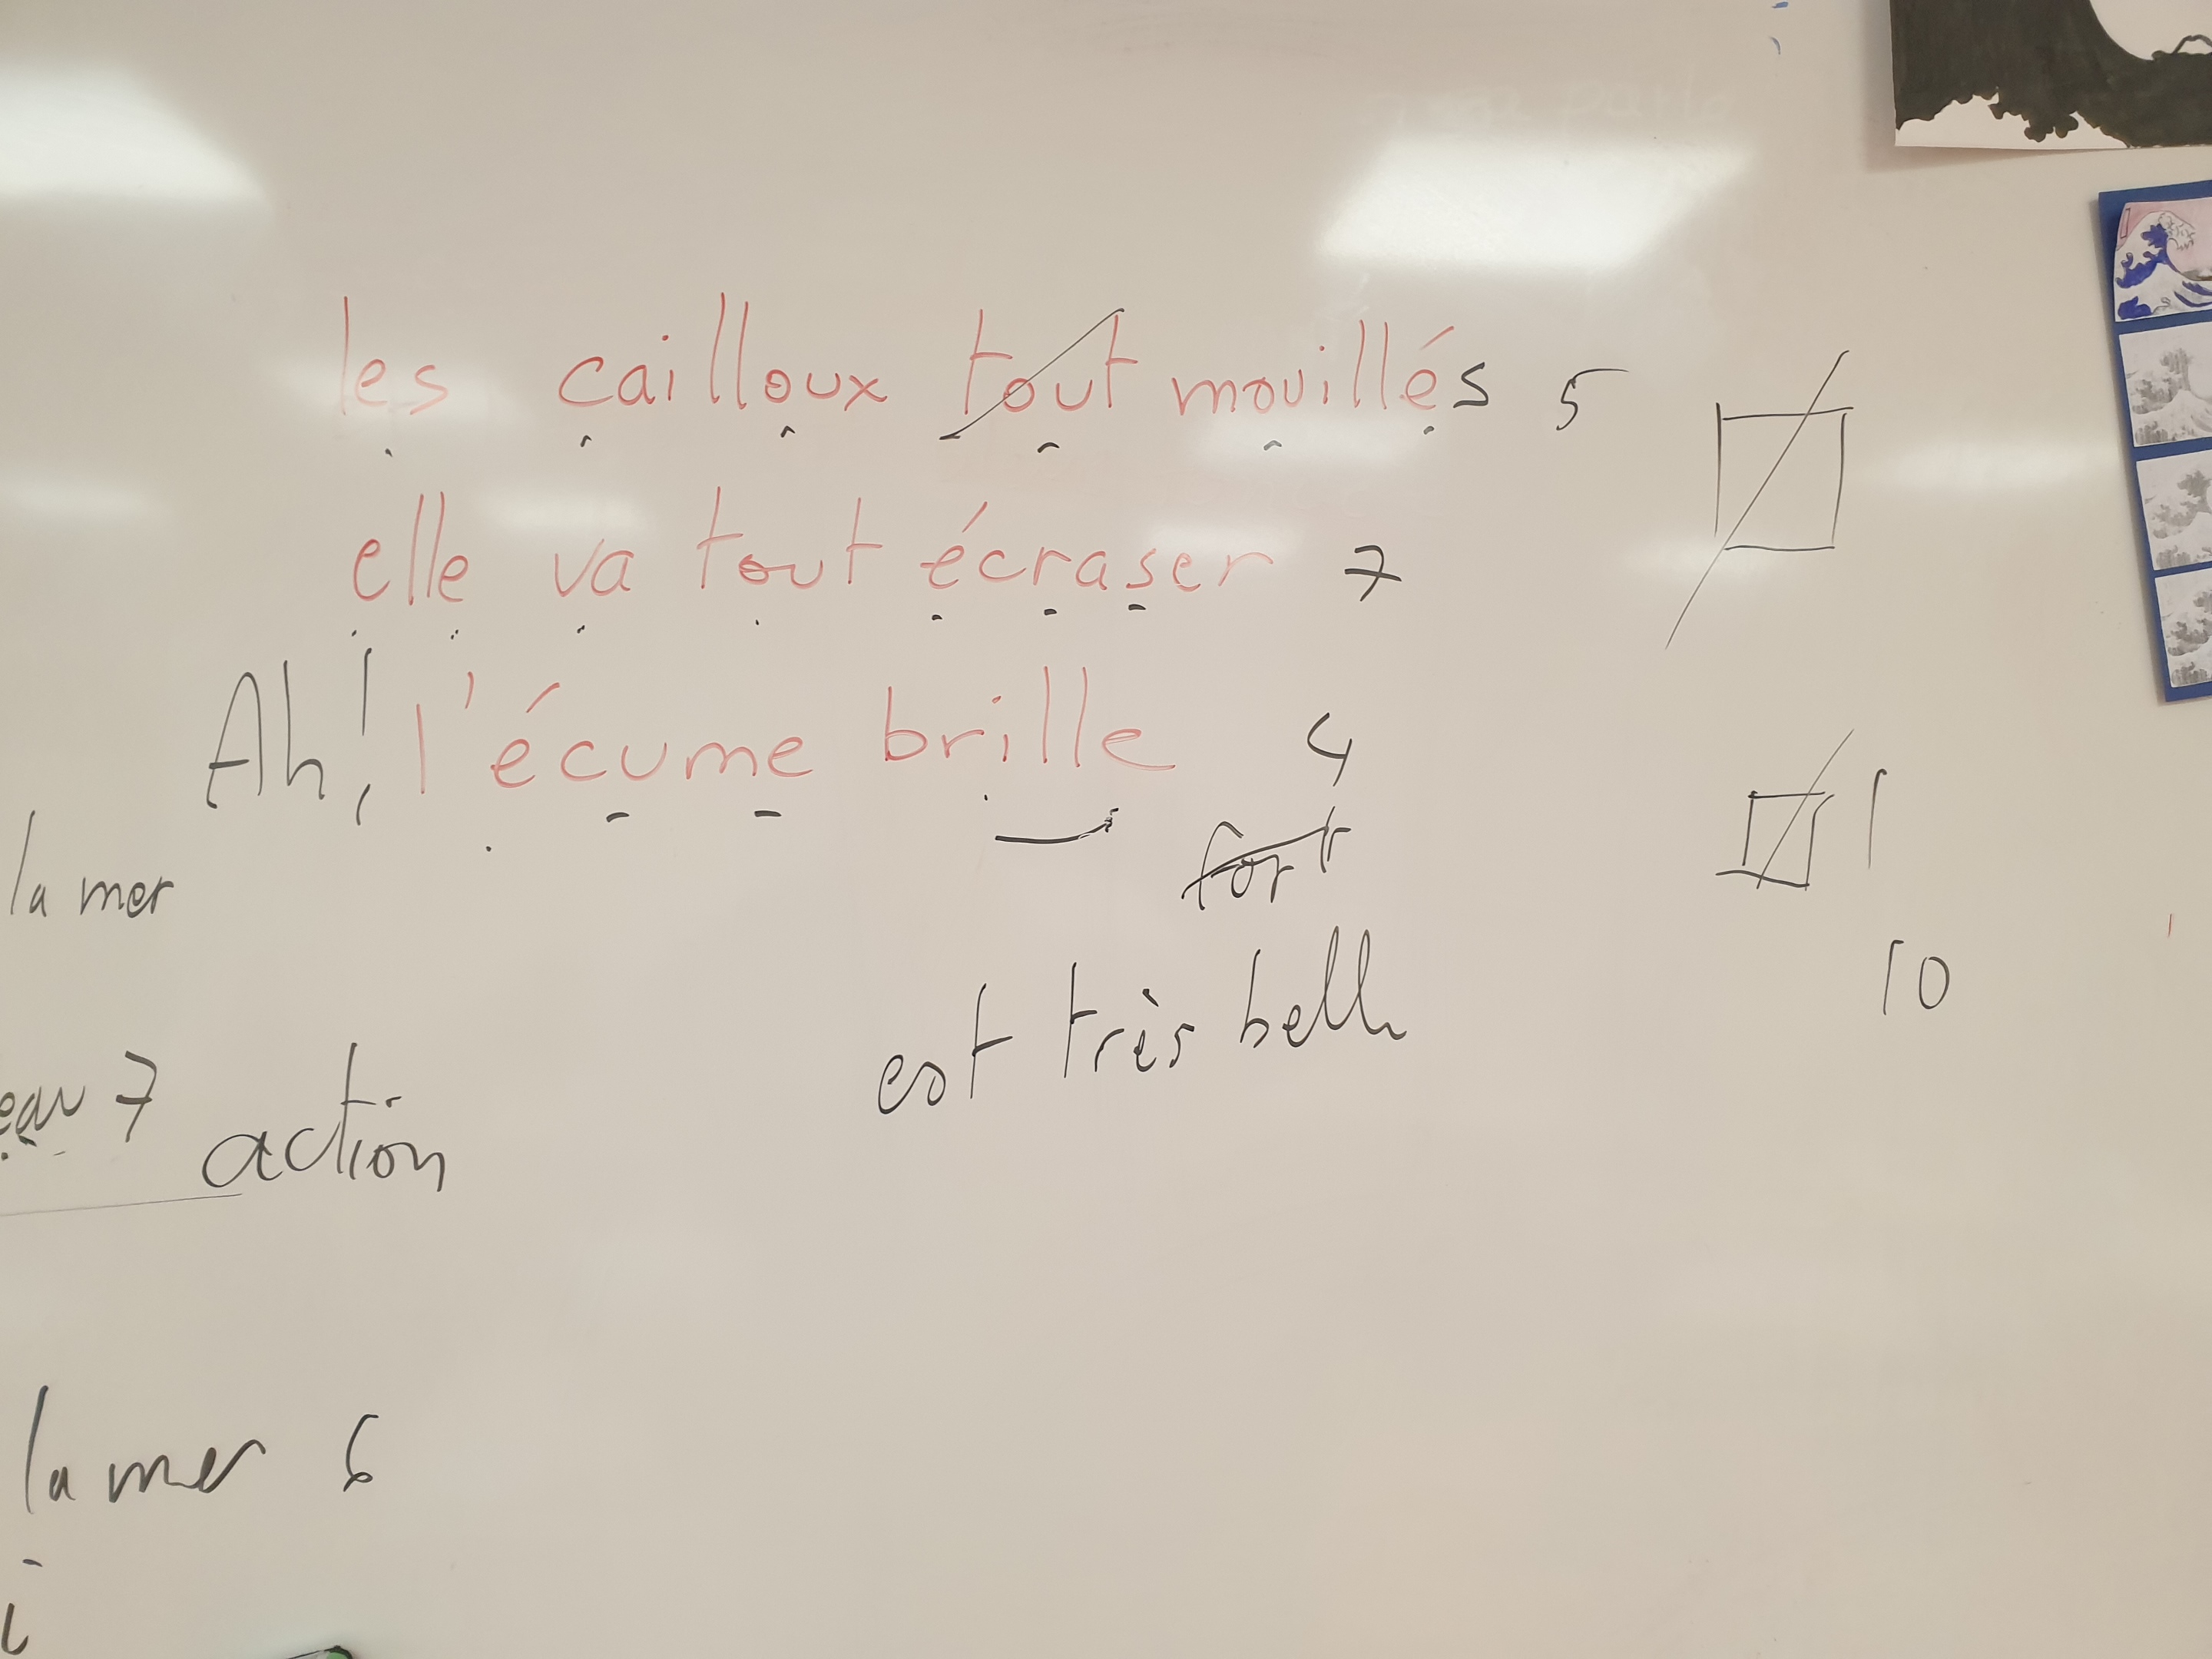 les cailloux tout mouillés 5
elle va tout écraser 7
Ah, ! l'écume brille 4
la mer
fort
10
est très belle
eau 7 action
la mer 6